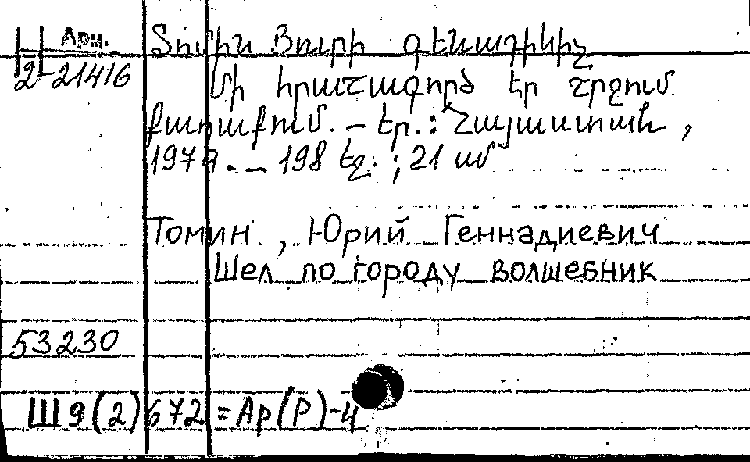 Арм. Տոմին Յուրի Գենադիևիչ
2-21416 Մի հրաշագործ էր շրջում
քաղաքում. – Եր.: Հայաստան,
197 . – 198 էջ.; 21 սմ
Томин, Юрий Геннадиевич
Шел по городу волшебник
53230
Ш9(2)672=Ар(Р)-4